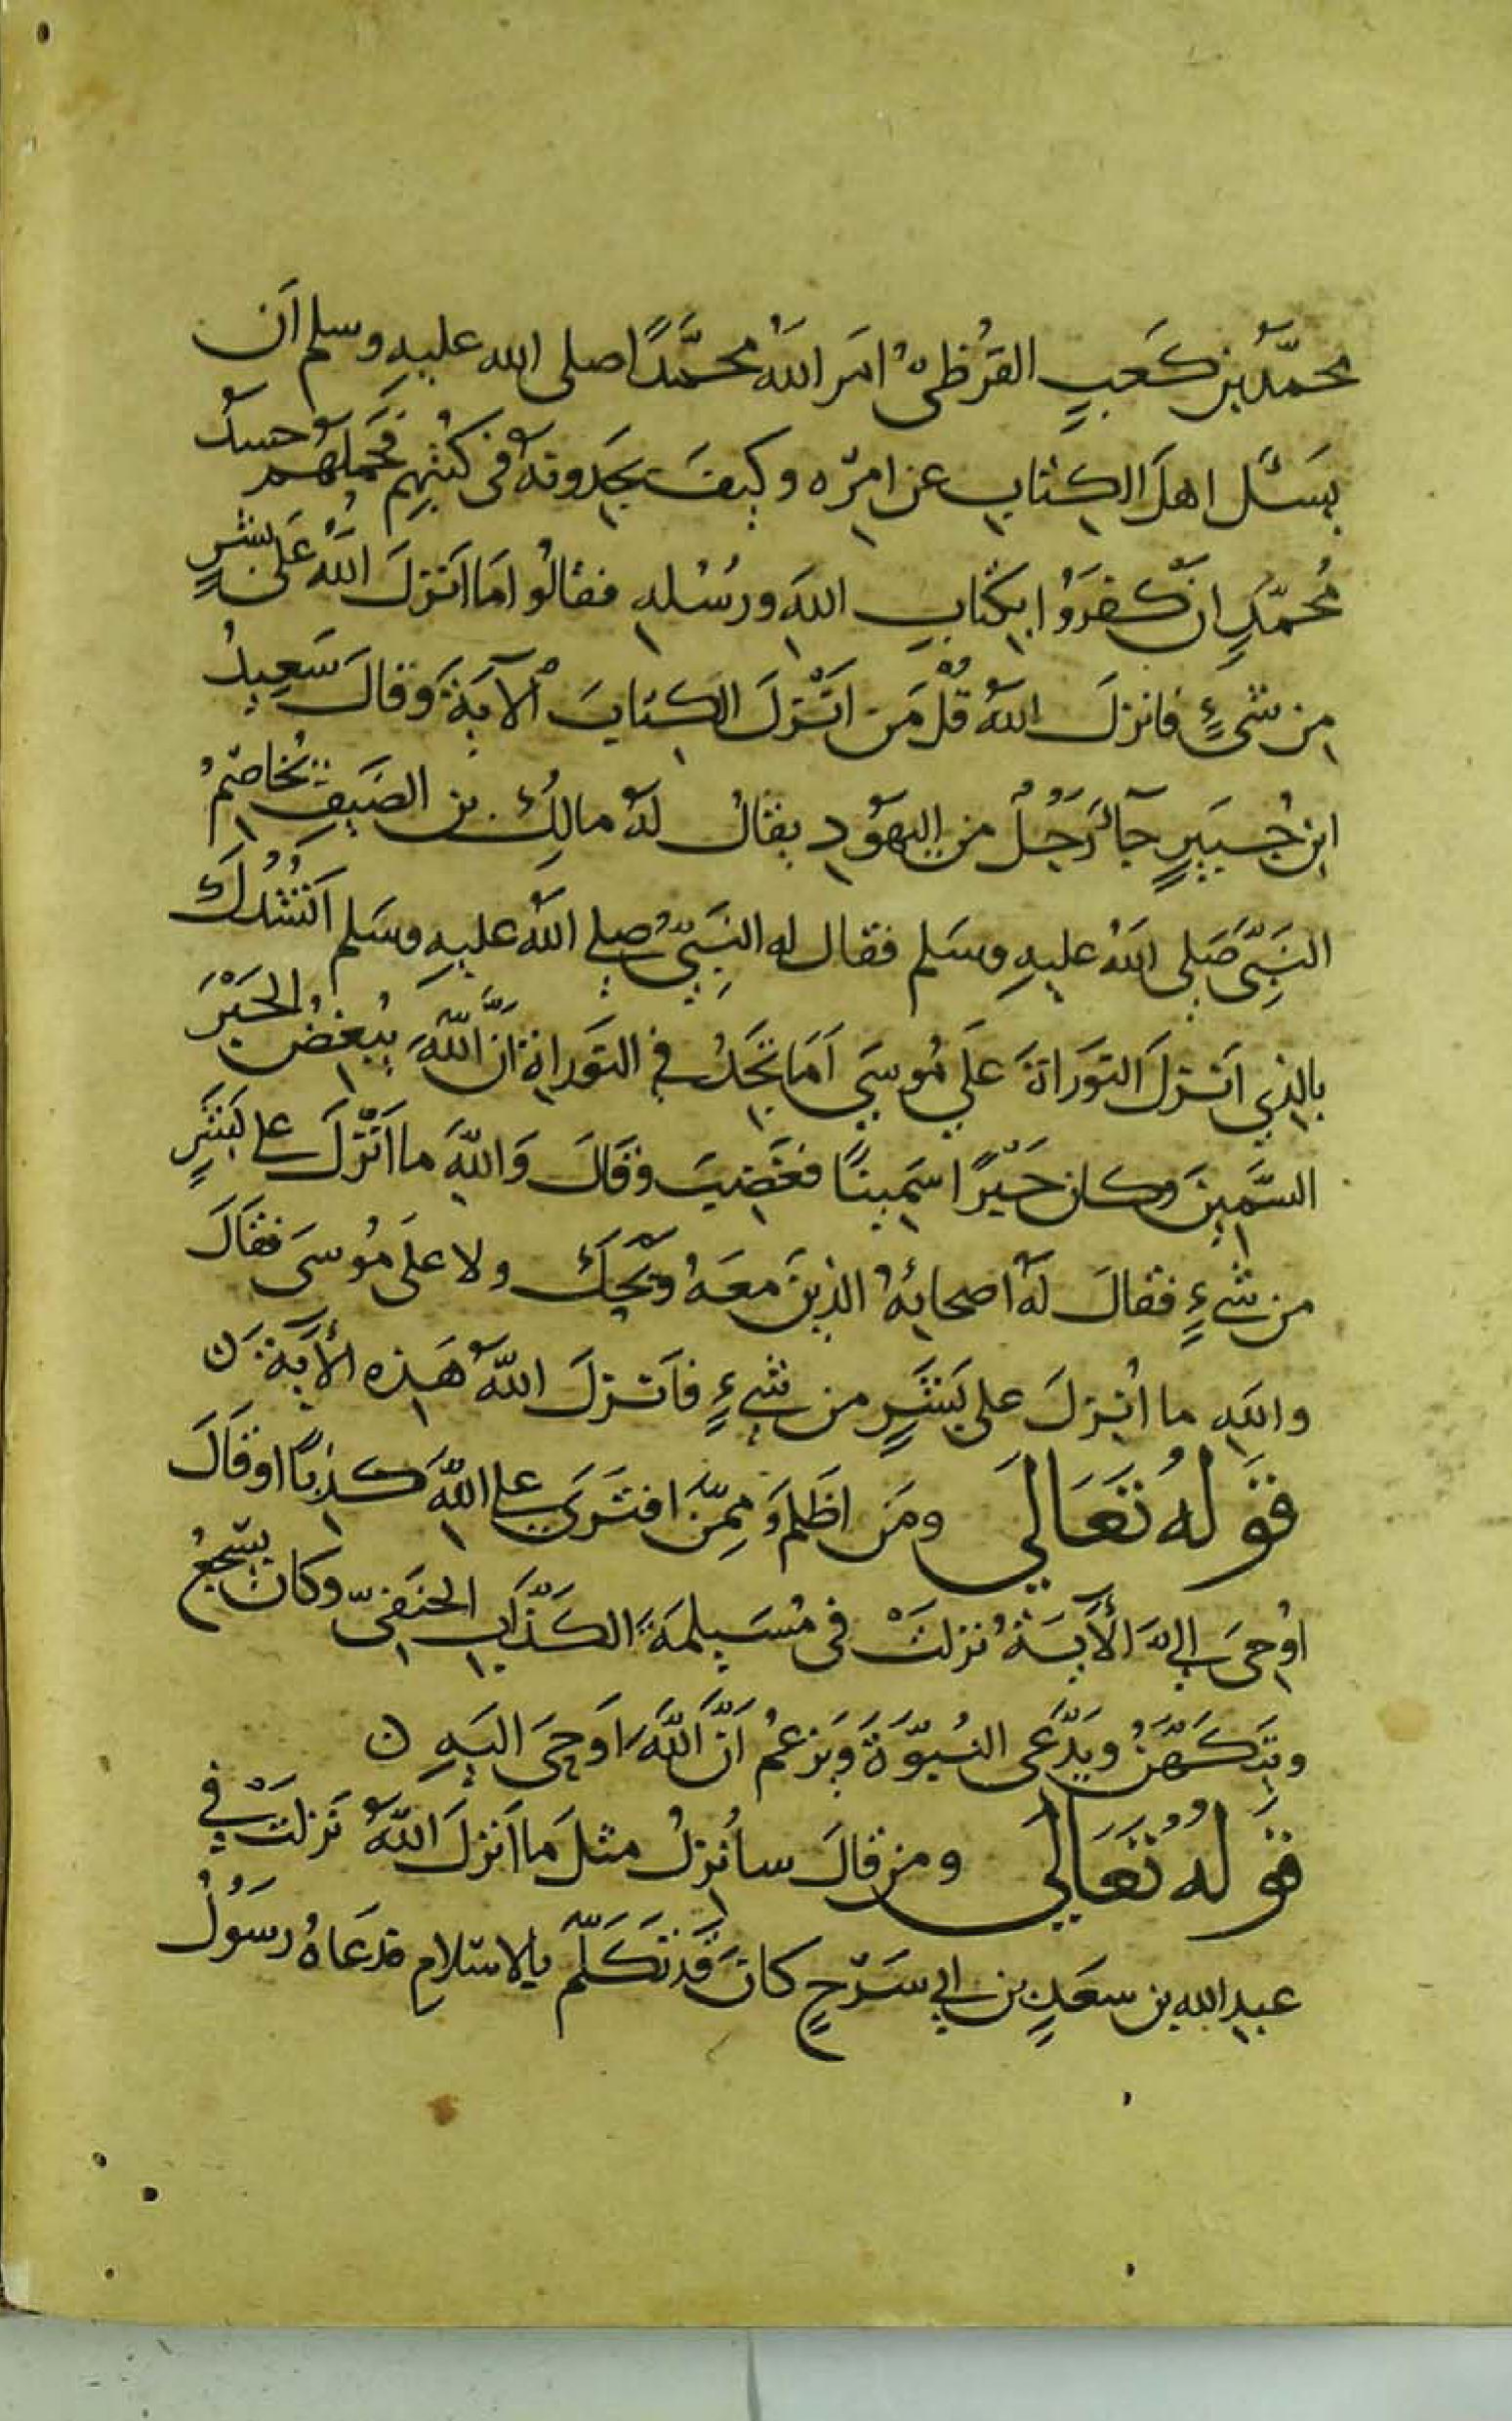 محمّدُ بن كَعبٍ القرُظىُّ امَر اللهُ محمَّدًا صلى الله عليهِ وسلم اَن
يَسئَل اهلَ الكِتابِ عن امرِه وكيفَ يجَدونهُ فى كُتُبِهِم فحَملَهُم حسدُ
مُحمّدٍ ان كفرَوُا بِكتابِ اللهِ ورسُلهِ فقالوُا مَا اَنزلَ اللهُ عَلى بشرٍ
مِن شىءٍ فانزلَ اللهُ قُلْ مَن اَنْزلَ الكتابَ الآيَةَ وَقالَ سَعِيدُ
ابن جُبَيرٍ جآءَ رَجُلٌ من اليهَوُدِ يقالُ لهُ مالِكُ بن الضَيفِ يُخاصِمُ
النَبِىَّ صَلى اللهُ عليهِ وسَلم فقال له النَبِىُّ صلى اللهُ عليهِ وسَلم اَنشُدُكَ
بالذِي اَنزلَ التوَراةَ عَلَي مُوسَي اَمَا تجَدُ فِي التوَراةِ انَّ اللّهَ يُبغضُ الحَبْرَ
السَّمِينَ وكان حَبْرًا سَمِينًا فغَضِبَ وَقالَ وَاللّهِ ما اَنْزلَ على بَشَرٍ
من شَيءٍ فقالَ لهُ اصحابُهُ الذِينَ معَهُ وَيْحَكَ ولا علَى مُوسَى فقَالَ
واللهِ ما انُزِلَ على بَشَرٍ من شيءٍ فاَنزلَ اللّهُ هَذِه الأيَةَ ن
قوَلهُ تعَالَي ومَن اظَلمُ مِمَّن افتَرَي على اللّهِ كذِبًا اوَقَالَ
اوُحِىَ اليَّ الأيَةُ نزلتْ فى مُسَيلِمَةَ الكَذّابِ الحنَفِىّ وكَانَ يسَّجعُ
ويَتكَهَّنُ ويَدّعَى النُبوّةَ وَيزعُمُ اَنَّ اللّهَ اَوحىَ اليَهِ ن
قوَلهُ تعَالَي ومن قالَ سانُزِلُ مثلَ ما اَنزلَ اللّهُ نَزلتْ فِي
عبدِ الله بن سعَدٍ بن ابي سَرْحٍ كانَ قَدتكَلّمَ بالاسَلامِ فدعَاهُ رسَوُلُ